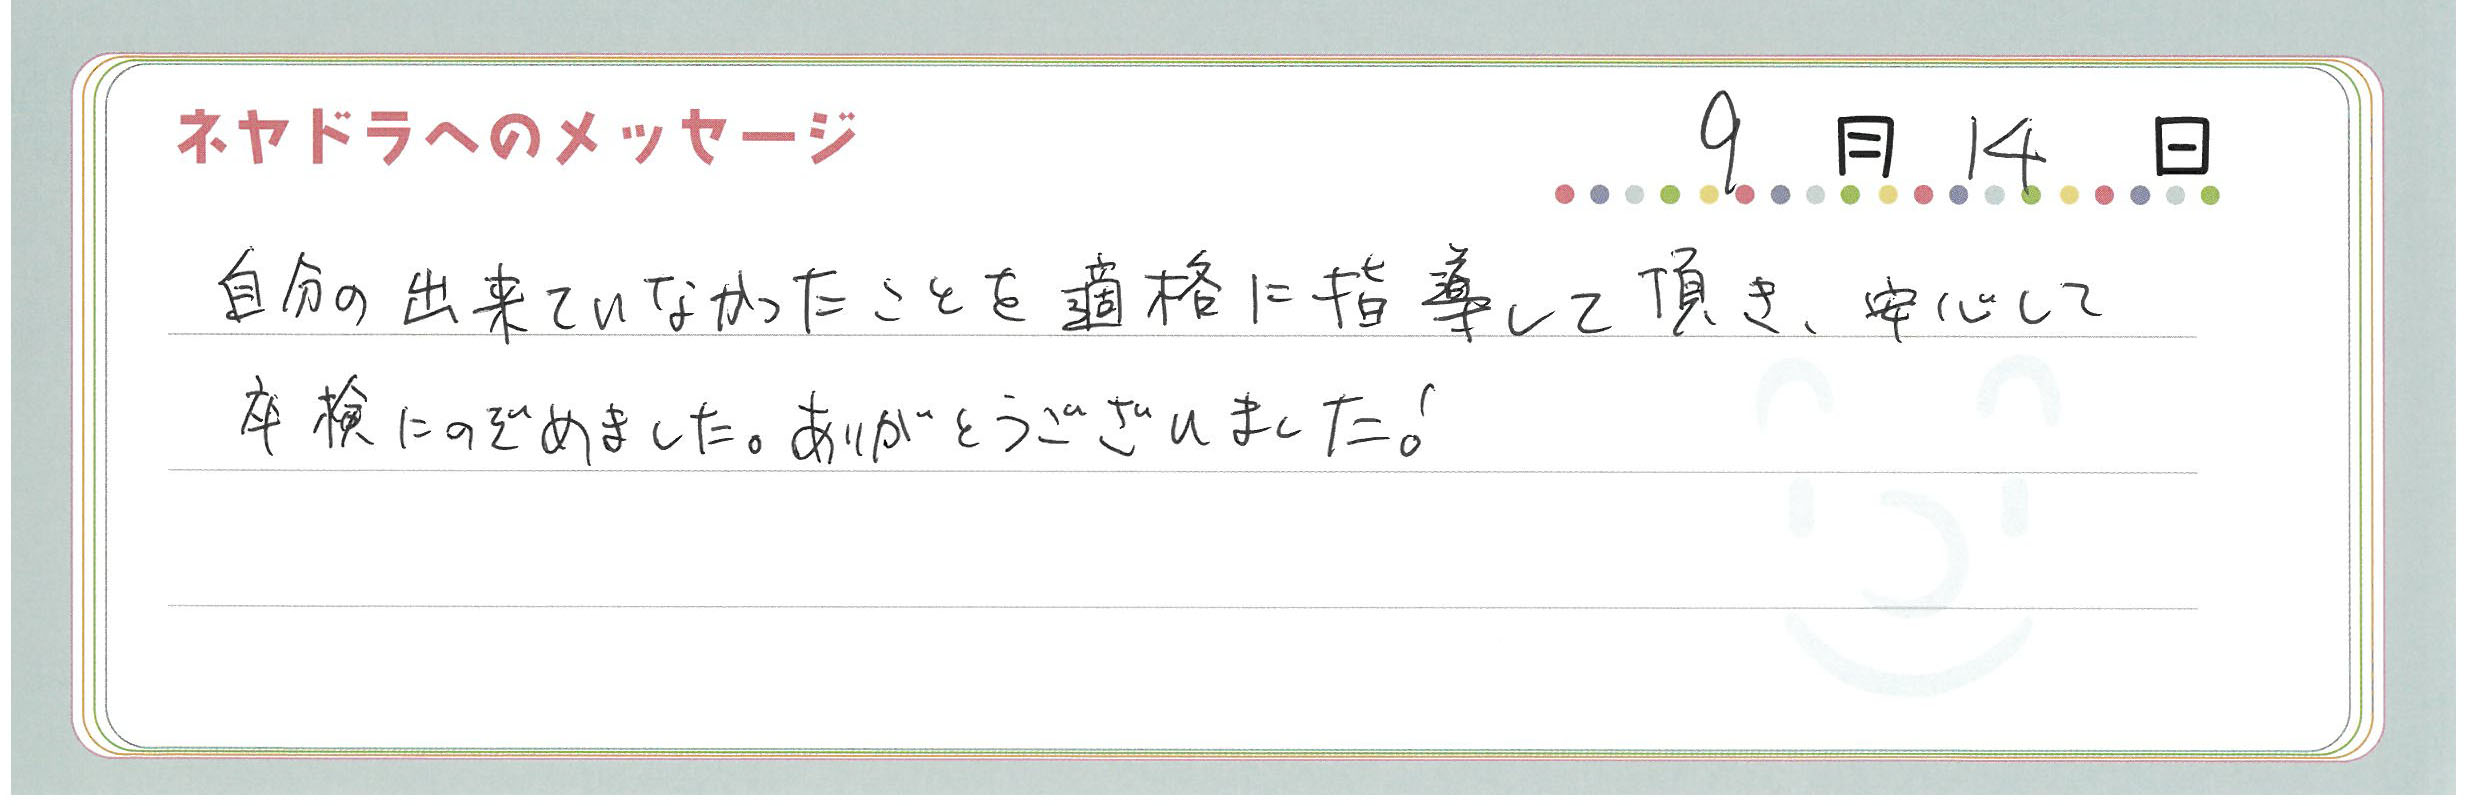 ネヤドラへのメッセージ
9月14日
自分の出来ていなかったことを適格に指導して頂き、安心して
卒検にのぞめました。ありがとうございました!